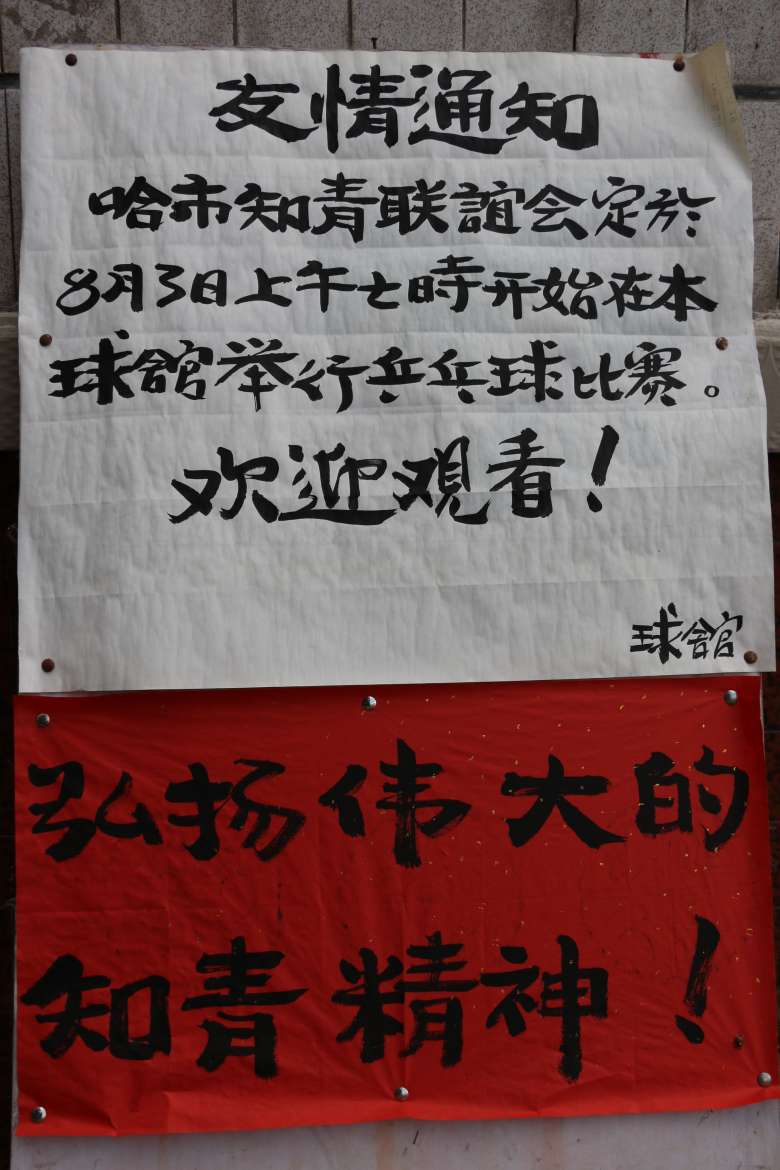 友情通知
哈市知青联誼会定於
8月3日上午七時开始在本
球舘举行乒乓球比赛。
欢迎观看！
球舘
弘扬伟大的
知青精神！